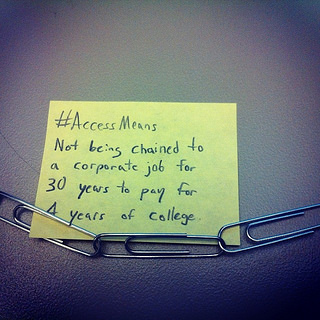 #AccessMeans
Not being chained to
a corporate job for
30 years to pay for
4 years of college.